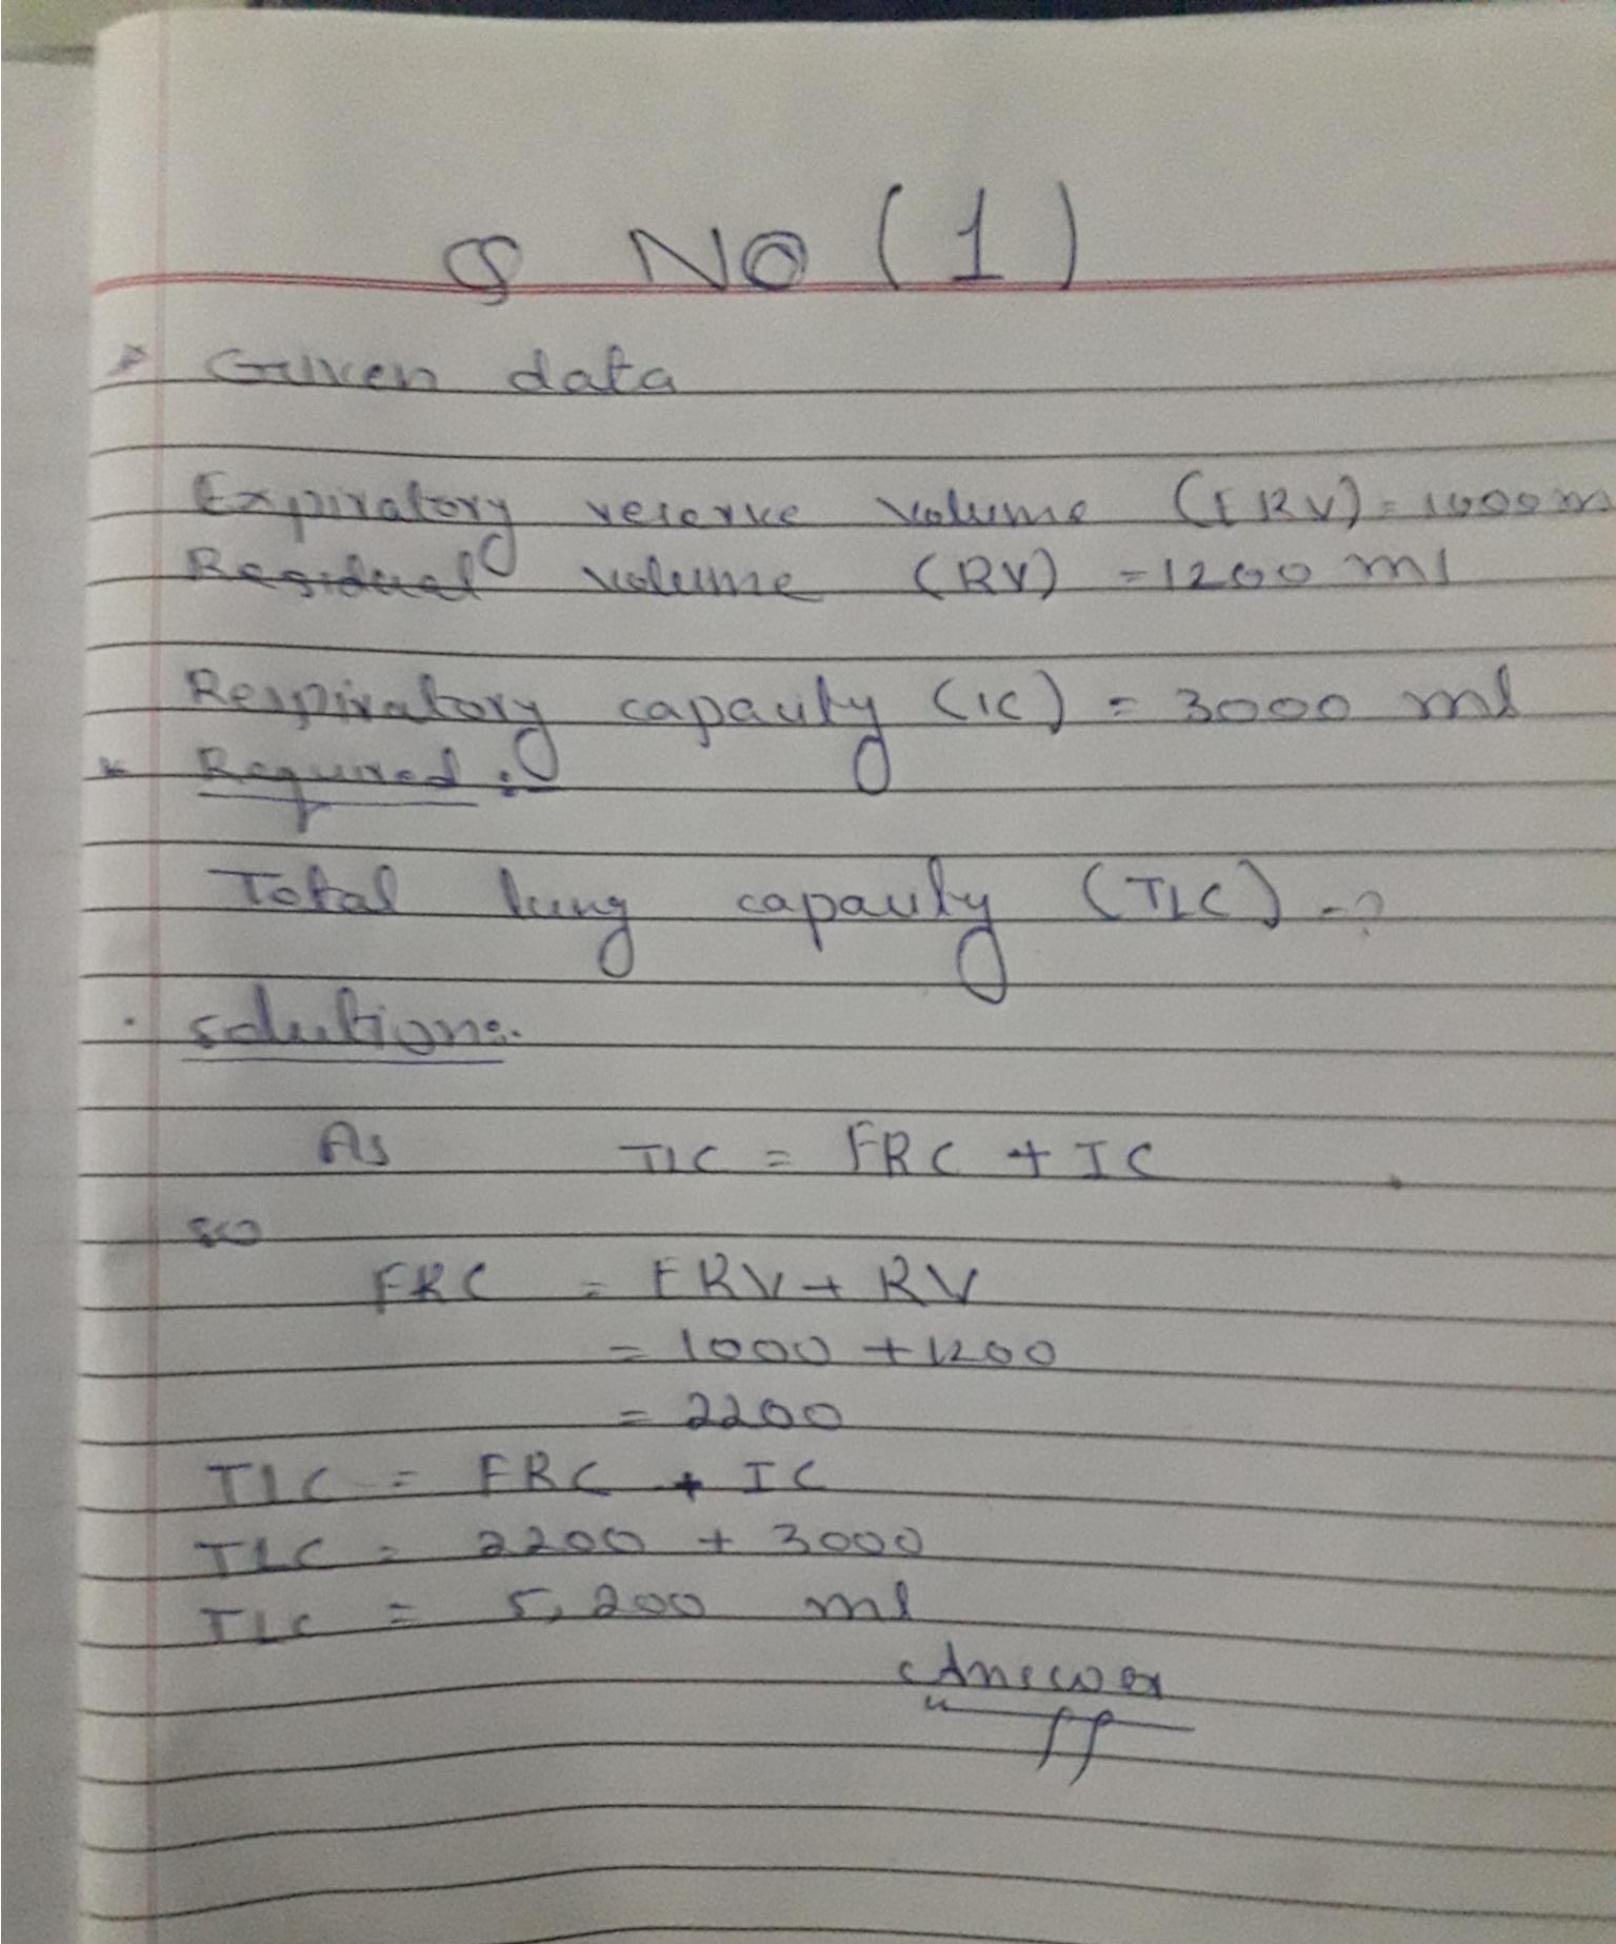 Q NO (1)
Given data
Expiratory reserve volume (ERV) = 1000 m
Residual volume (RV) = 1200 ml
Respiratory capacity (IC) = 3000 ml
Required :-
Total lung capacity (TLC) = ?
solution:-
As TLC = FRC + IC
so
FRC = ERV + RV
= 1000 + 1200
= 2200
TLC = FRC + IC
TLC = 2200 + 3000
TLC = 5,200 ml
Answer